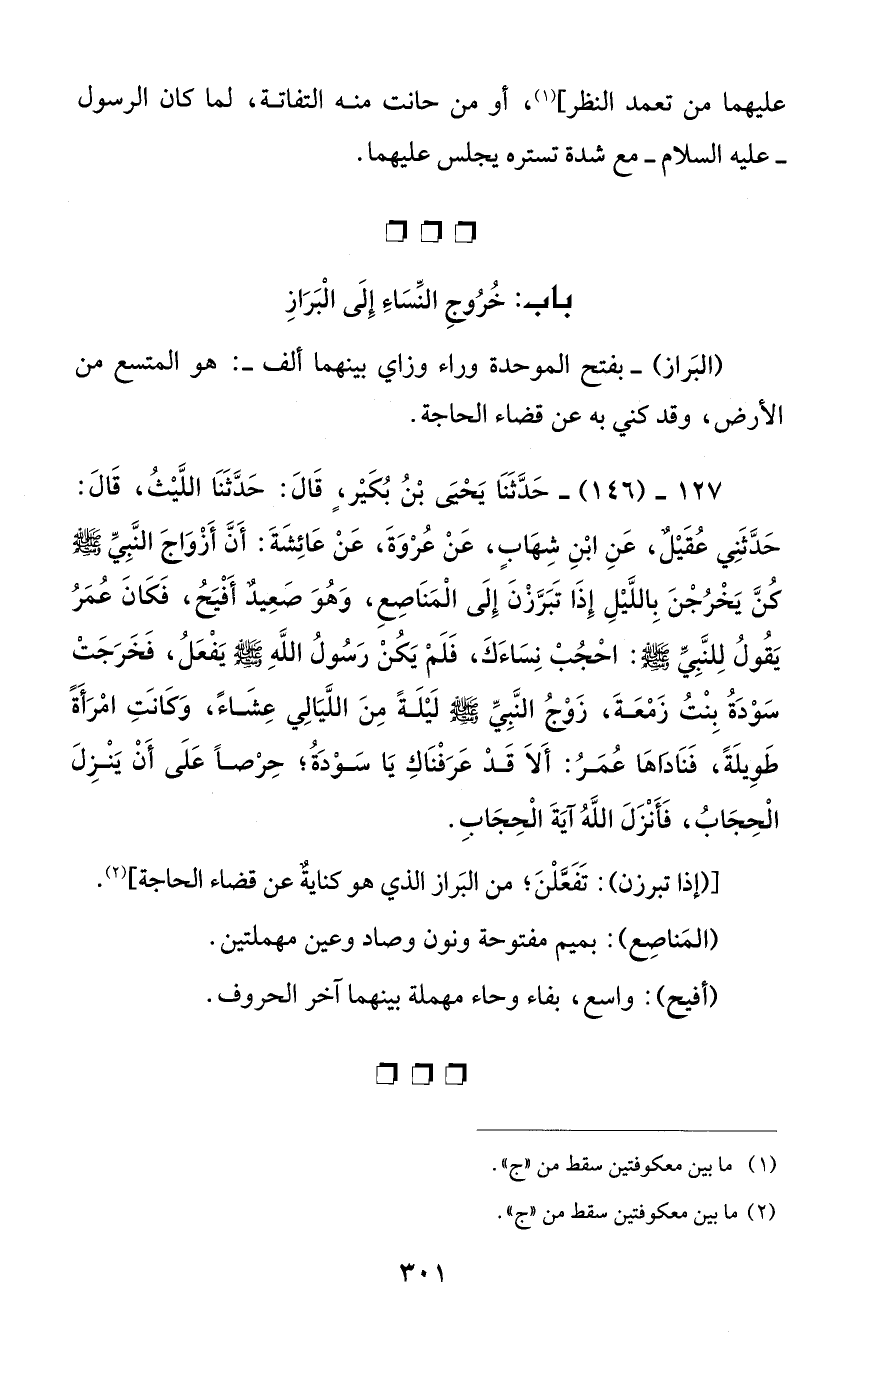 عليهما من تعمد النظر](١)، أو من حانت منه التفاتة، لما كان الرسول
ـ عليه السلام ـ مع شدة تستره يجلس عليهما.
باب: خُرُوجِ النِّسَاءِ إِلَى الْبَرَازِ
(البَراز) ـ بفتح الموحدة وراء وزاي بينهما ألف ـ: هو المتسع من
الأرض، وقد كني به عن قضاء الحاجة.
١٢٧ ـ (١٤٦) ـ حَدَّثَنَا يَحْيَى بْنُ بُكَيْرٍ، قَالَ: حَدَّثَنَا اللَّيْثُ، قَالَ:
حَدَّثَنِي عُقَيْلٌ، عَنِ ابْنِ شِهَابٍ، عَنْ عُرْوَةَ، عَنْ عَائِشَةَ: أَنَّ أَزْوَاجَ النَّبِيِّ ﷺ
كُنَّ يَخْرُجْنَ بِاللَّيْلِ إِذَا تَبَرَّزْنَ إِلَى الْمَنَاصِعِ، وَهُوَ صَعِيدٌ أَفْيَحُ، فَكَانَ عُمَرُ
يَقُولُ لِلنَّبِيِّ ﷺ: احْجُبْ نِسَاءَكَ، فَلَمْ يَكُنْ رَسُولُ اللَّهِ ﷺ يَفْعَلُ، فَخَرَجَتْ
سَوْدَةُ بِنْتُ زَمْعَةَ، زَوْجُ النَّبِيِّ ﷺ لَيْلَةً مِنَ اللَّيَالِي عِشَاءً، وَكَانَتِ امْرَأَةً
طَوِيلَةً، فَنَادَاهَا عُمَرُ: أَلاَ قَدْ عَرَفْنَاكِ يَا سَوْدَةُ؛ حِرْصاً عَلَى أَنْ يَنْزِلَ
الْحِجَابُ، فَأَنْزَلَ اللَّهُ آيَةَ الْحِجَابِ.
[(إذا تبرزن): تَفَعَّلْنَ؛ من البَراز الذي هو كنايةٌ عن قضاء الحاجة](٢).
(المَناصِع): بميم مفتوحة ونون وصاد وعين مهملتين.
(أفيح): واسع، بفاء وحاء مهملة بينهما آخر الحروف.
(١) ما بين معكوفتين سقط من «ج».
(٢) ما بين معكوفتين سقط من «ج».
٣٠١